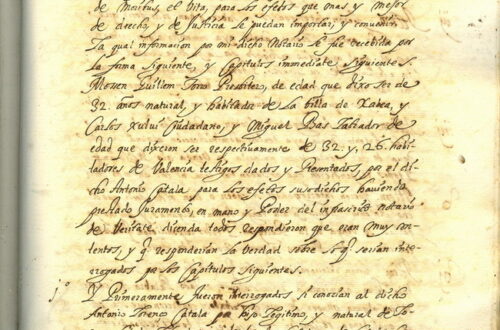 de Moribus, et Vita, para los efetos que mas y mejor
de drecho, y de Justicia se puedan importar, y convenir.
La qual informacion por mi dicho Notario se fue recebida por
la forma siguiente, y Capitulos immediate siguientes.
Mossen Guillem Toro Presbitero, de edad que dixo ser de
32. años natural, y habitador de la billa de Xabea, y
Carlos Ciudadano, y Miguel Bas Labrador de
edad que dixeron ser respectivamente de 32. y, 26. habi-
tadores de Valencia testigos dados y Presentados, por el di-
cho Antonio Catala para los efetos susodichos haviendo
prestado Juramento, en mano y Poder del infrascrito notario
de Veritate dicenda todos respondieron que eran muy con-
tentos, y q̃ responderian la verdad sobre lo q̃ serian inte-
rrogados por los Capitulos siguientes.
j.º Y Primeramente fueron interrogados si conocian al dicho
Antonio Lorenço Catala por hijo legitimo, y natural de